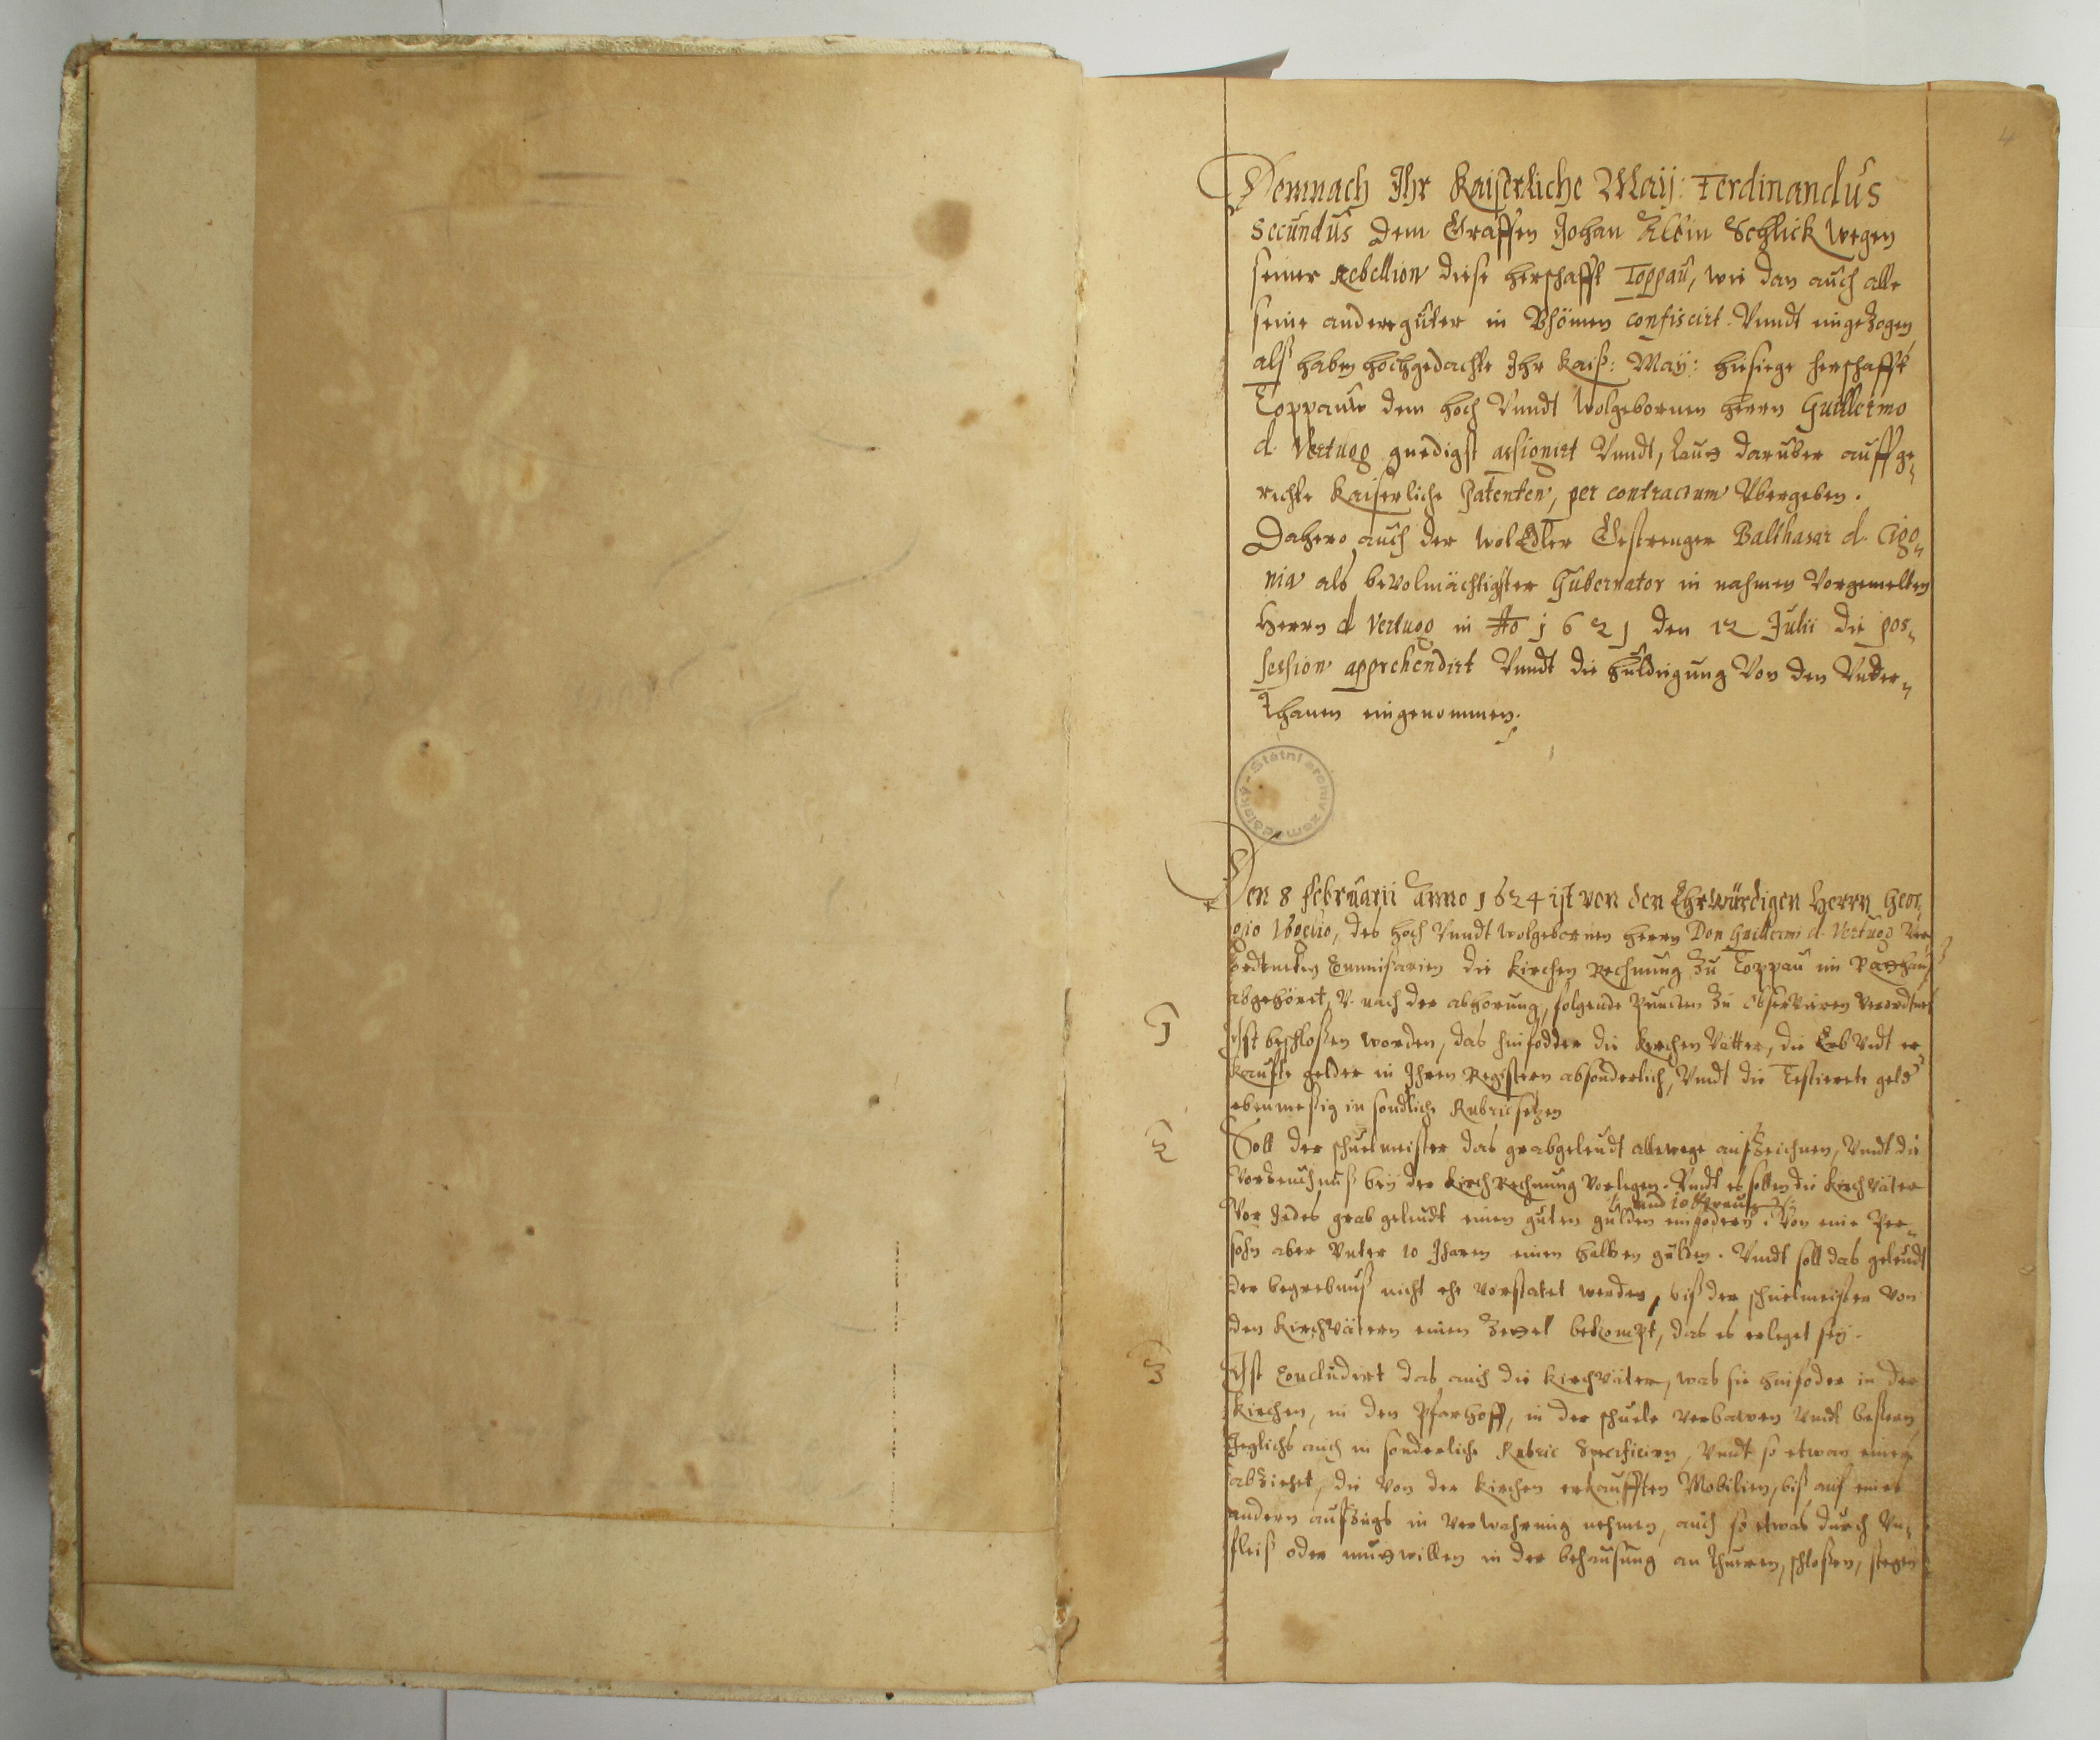 4
Demnach Ihr Kaiserliche Maÿ: Ferdinandus
Secundus dem Graffen Johan Albin Schlick wegen
seiner Rebellion diese herschafft Toppau, wie dan auch alle
seine andere güter in Bhömen confiscirt. Vnndt eingezogen
alß haben hochgedachte Ihr Kaiß: Maÿ: hiesiege herschafft
Toppauw dem hoch Vnndt Wolgebornen herrn Guillermo
d. Vertugo gnedigst assignirt Vnndt, lautz darüber auffge„
richte Kaiserliche Patenten, per contractum Vbergeben.
Dahero auch der WolEdler Gestrenger Balthasar d. Cigo„
nia als bevolmächtigster Gubernator in nahmen Vorgemelten
Herrn d Vertugo in Ao 1621 den 12 Julii die pos„
session apprehendirt Vnndt die huldigung Von den Vnter„
thanen eingenommen.
Státní archiv zemědělský
Den 8 Februarii Anno 1624 ist von den Ehrwürdigen Herrn Geor„
gio Vogelio, des hoch Vnndt Wolgebornen herrn Don Guillermi d. Vertugo Ver„
ordtneten Commissarien die Kirchen Rechnung zu Toppau im Rathauß
abgehöret, V. nach der abhorung, folgende Puncten zu observiren verordtnet
1 Ist beschloßen worden, das hinfodder die Kirchen Vätter, die Erb Vndt er„
kaufte gelder in Ihren Registern absonderlich, Vndt die Testierete geld
ebenmeßig in sondliche Rubric setzen
2 Soll der schuelmeister das grabgeleudt allewege aufzeichnen, Vndt die
Vorzeuchnuß beÿ der Kirch Rechnung Vorlegen. Vndt es sollen die Kirchväter
und 10
Vor Jedes grab geleudt einen guten gülden einfodern. Von eine Per„
sohn aber Vnter 10 Jharen einen halben gülden. Vndt soll das geleudt
der begrebnuß nicht ehe vorstatet werden, biß der schuelmeister von
den Kirchvätern einen Zettel bekompt, das es erleget seÿ.
3 Ist Concludirt das auch die Kirchväter, was sie hinfoder in der
Kirchen, in den Pfarhoff, in der schuele verbawen Vndt bessern
Jeglichs auch in sonderliche Rubric Specificirn, Vndt so etwan einer
abziehet, die von der Kirchen erkaufften Mobilien, biß auf eines
andern aufzugs in Verwahrung nehmen, auch so etwas durch Vn„
fleiß oder mutwillen in der behausung an thueren, schloßen, stegen